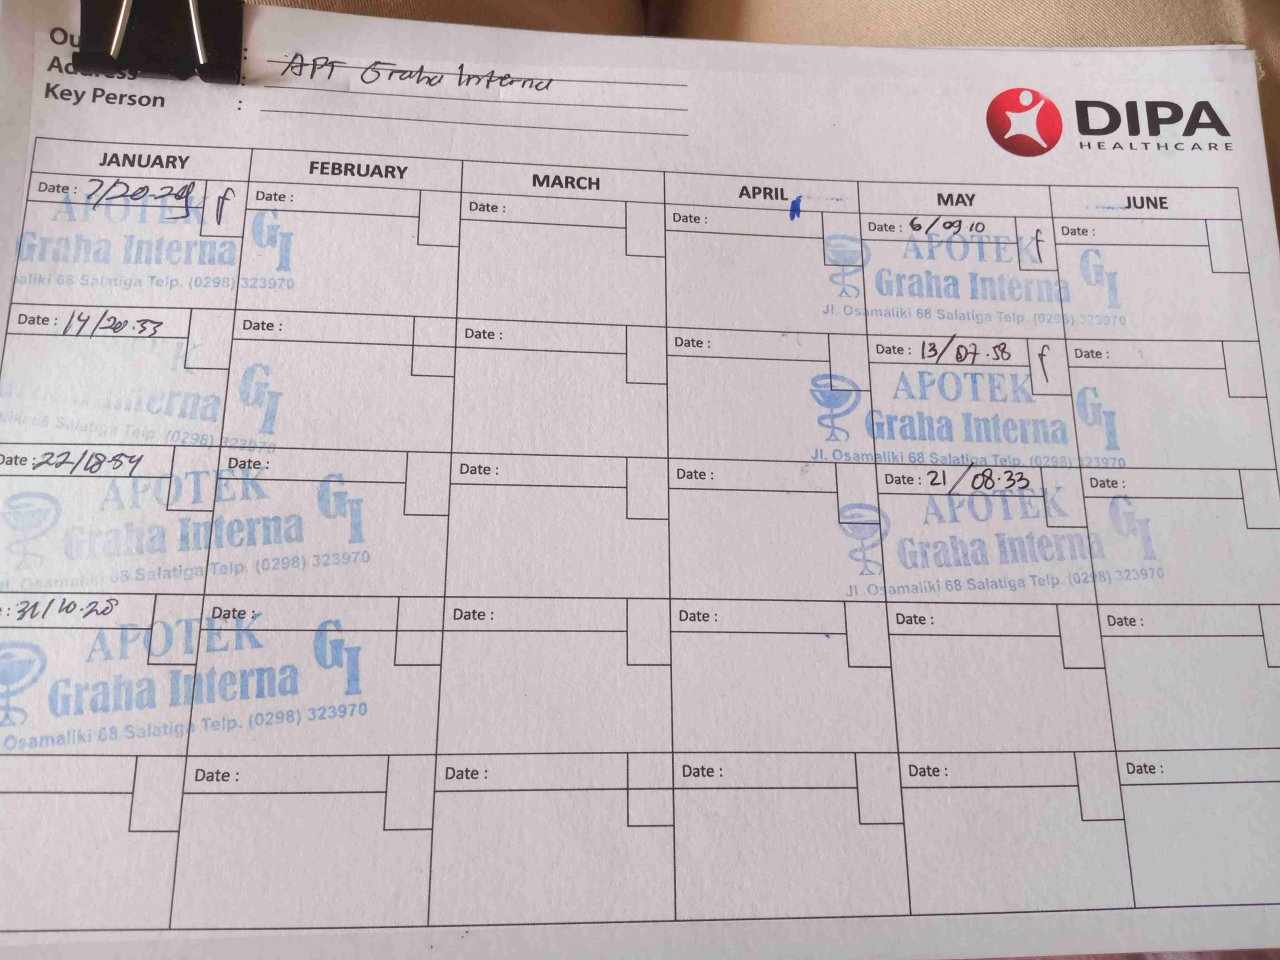 Ou
Address : APT Graha Interna
Key Person :
DIPA
HEALTHCARE
JANUARY FEBRUARY MARCH APRIL MAY JUNE
Date : 7/20 f Date : Date : Date : Date : 6/09 10 f Date :
APOTEK GI APOTEK GI
Graha Interna Graha Interna
aliki 68 Salatiga Telp. (0298) 323970 Jl. Osamaliki 68 Salatiga Telp. (0298) 323970
Date : 14/20.33 Date : Date : Date : Date : 13/07.58 f Date :
APOTEK GI
Interna GI Graha Interna
68 Salatiga Telp. (0298) 323970 Jl. Osamaliki 68 Salatiga Telp. (0298) 323970
Date : 22/18.54 Date : Date : Date : Date : 21/08.33 Date :
APOTEK GI APOTEK GI
Graha Interna Graha Interna
Jl. Osamaliki 68 Salatiga Telp. (0298) 323970 Jl. Osamaliki 68 Salatiga Telp. (0298) 323970
: 31/10.28 Date : Date : Date : Date : Date :
APOTEK GI
Graha Interna
Osamaliki 68 Salatiga Telp. (0298) 323970
Date : Date : Date : Date : Date :